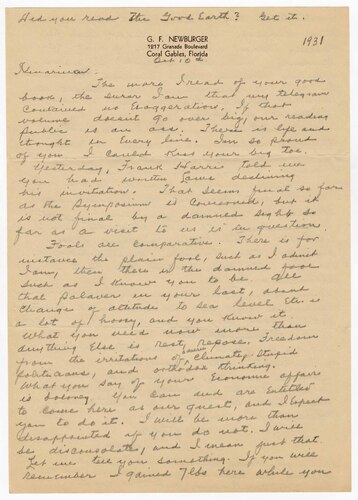 Did you read The Good Earth? Get it.
G. F. NEWBURGER
1217 Granada Boulevard
Coral Gables, Florida
1931
Oct 10th
The more I read of your good
book, the surer I am that my telegram
contained no exaggeration. If that
volume doesnt go over big, our reading
public is an ass. There is life and
thought in every line. I'm so proud
of you I could kiss your big toe.
Yesterday, Frank Harris told me
you had written Lowe declining
his invitation. That seems final so far
as the Symposium is concerned, but it
is not final by a damned sight so
far as a visit to us is in question.
Fools are comparative. There is for
instance the plain fool, such as I admit
I am, then there is the damned fool
such as I know you to be. All
that palaver in your last, about
change of altitude to sea level etc. is
a lot of hooey, and you know it.
What you need now more than
anything else is rest, repose, freedom
from the irritations of climate, stupid
politicians, and orthodox thinking.
What you say of your economic affair
is baloney. You can and are entitled
to come here as our guest, and I expect
you to do it. I will be more than
disappointed if you do not. I will
be disconsolate, and I mean just that
Let me tell you something. If you will
remember I gained 7 lbs here while you